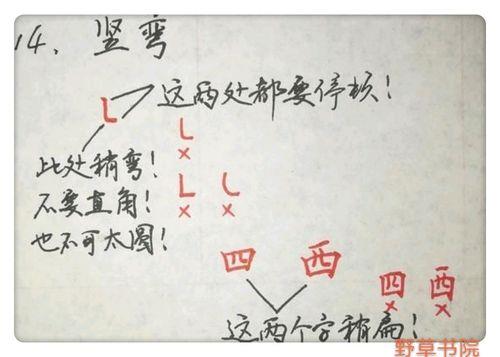 14、竖弯
乚 这两处都要停顿！
乚
×
此处稍弯！
不要直角！
也不可太圆！
乚 乚
× ×
四 西
四 西
× ×
这两个字稍扁！
野草书院